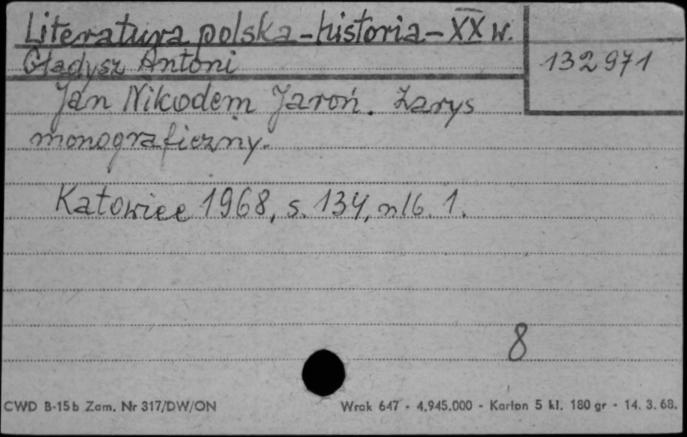 Literatura polska - historia - XX w.
Gładysz Antoni
132971
Jan Nikodem Jaroń. Zarys
monograficzny.
Katowice 1968, s. 134, nlb. 1.
8
CWD B-15b Zam. Nr 317/DW/ON
Wrak 647 - 4.945.000 - Karton 5 kl. 180 gr - 14. 3. 68.